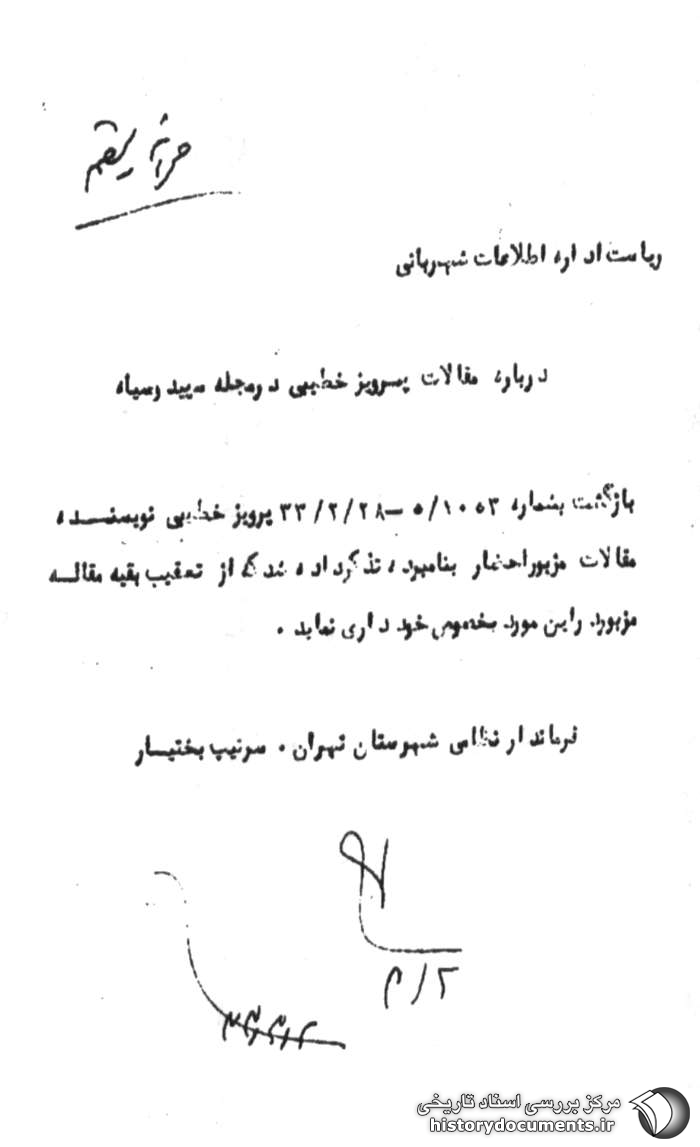 ریاست اداره اطلاعات شهربانی
درباره مقالات پرویز خطیبی درمجله سپید وسیاه
بازگشت بشماره ۵/۱۰۵۳ – ۳۳/۲/۲۸ پرویز خطیبی نویسنده
مقالات مزبوراحضار بنامبرده تذکرداده شد که از تعقیب بقیه مقاله
مزبوردراین مورد بخصوص خود داری نماید ۰
فرماندار نظامی شهرستان تهران ۰ سرتیپ بختیار
مرکز بررسی اسناد تاریخی
historydocuments.ir